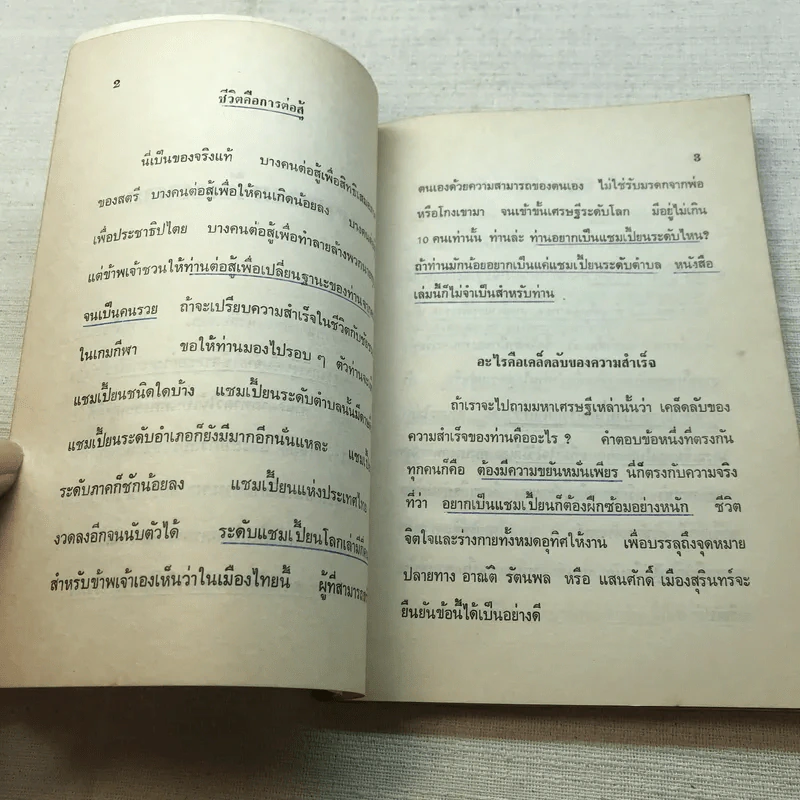 2
ชีวิตคือการต่อสู้
นี่เป็นของจริงแท้ บางคนต่อสู้เพื่อสิทธิเสมอ
ของสตรี บางคนต่อสู้เพื่อให้คนเกิดน้อยลง บางคน
เพื่อประชาธิปไตย บางคนต่อสู้เพื่อทำลายล้างพวก
แต่ข้าพเจ้าชวนให้ท่านต่อสู้เพื่อเปลี่ยนฐานะของท่าน
จนเป็นคนรวย ถ้าจะเปรียบความสำเร็จในชีวิตกับ
ในเกมกีฬา ขอให้ท่านมองไปรอบ ๆ ตัวท่าน
แชมเปี้ยนชนิดใดบ้าง แชมเปี้ยนระดับตำบลนั้นมี
แชมเปี้ยนระดับอำเภอก็ยังมีมากอีกนั่นแหละ
ระดับภาคก็ชักน้อยลง แชมเปี้ยนแห่งประเทศไทย
งวดลงอีกจนนับตัวได้ ระดับแชมเปี้ยนโลกเล่ามีกี่
สำหรับข้าพเจ้าเองเห็นว่าในเมืองไทยนี้ ผู้ที่สามารถ
3
ตนเองด้วยความสามารถของตนเอง ไม่ใช่รับมรดกจากพ่อ
หรือโกงเขามา จนเข้าขั้นเศรษฐีระดับโลก มีอยู่ไม่เกิน
10 คนเท่านั้น ท่านล่ะ ท่านอยากเป็นแชมเปี้ยนระดับไหน?
ถ้าท่านมักน้อยอยากเป็นแค่แชมเปี้ยนระดับตำบล หนังสือ
เล่มนี้ก็ไม่จำเป็นสำหรับท่าน
อะไรคือเคล็ดลับของความสำเร็จ
ถ้าเราจะไปถามมหาเศรษฐีเหล่านั้นว่า เคล็ดลับของ
ความสำเร็จของท่านคืออะไร ? คำตอบข้อหนึ่งที่ตรงกัน
ทุกคนก็คือ ต้องมีความขยันหมั่นเพียร นี่ก็ตรงกับความจริง
ที่ว่า อยากเป็นแชมเปี้ยนก็ต้องฝึกซ้อมอย่างหนัก ชีวิต
จิตใจและร่างกายทั้งหมดอุทิศให้งาน เพื่อบรรลุถึงจุดหมาย
ปลายทาง อาณัติ รัตนพล หรือ แสนศักดิ์ เมืองสุรินทร์จะ
ยืนยันข้อนี้ได้เป็นอย่างดี